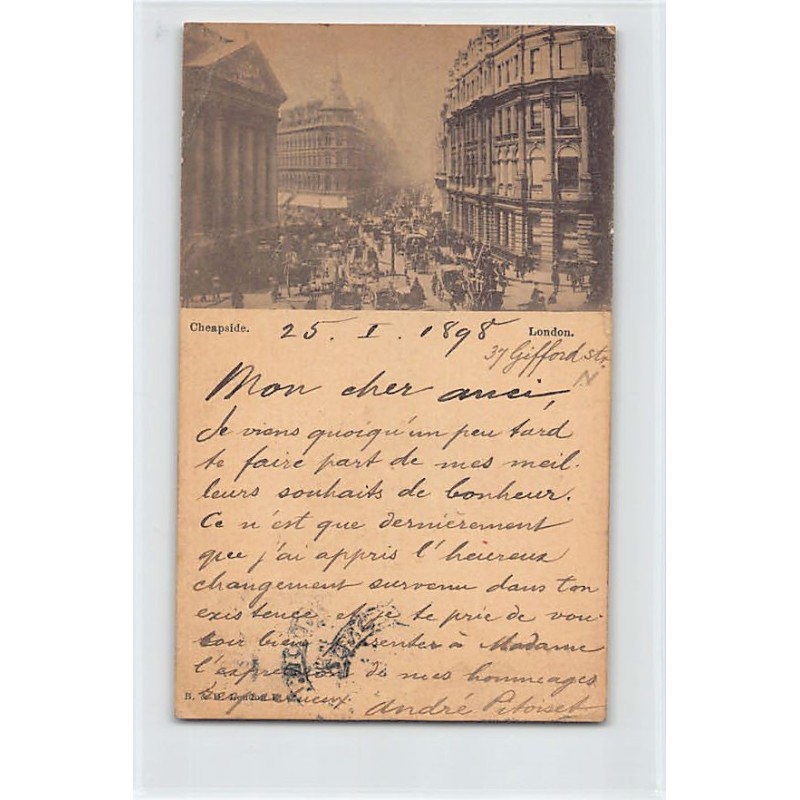 Cheapside. 25. I. 1898 London.
37 Gifford str.
N
Mon cher ami,
Je viens quoiqu'un peu tard
te faire part de mes meil-
leurs souhaits de bonheur.
Ce n'est que dernièrement
que j'ai appris l'heureux
changement survenu dans ton
existence et je te prie de vou-
loir bien présenter à Madame
l'expression de mes hommages
respectueux. André Petoiset
London